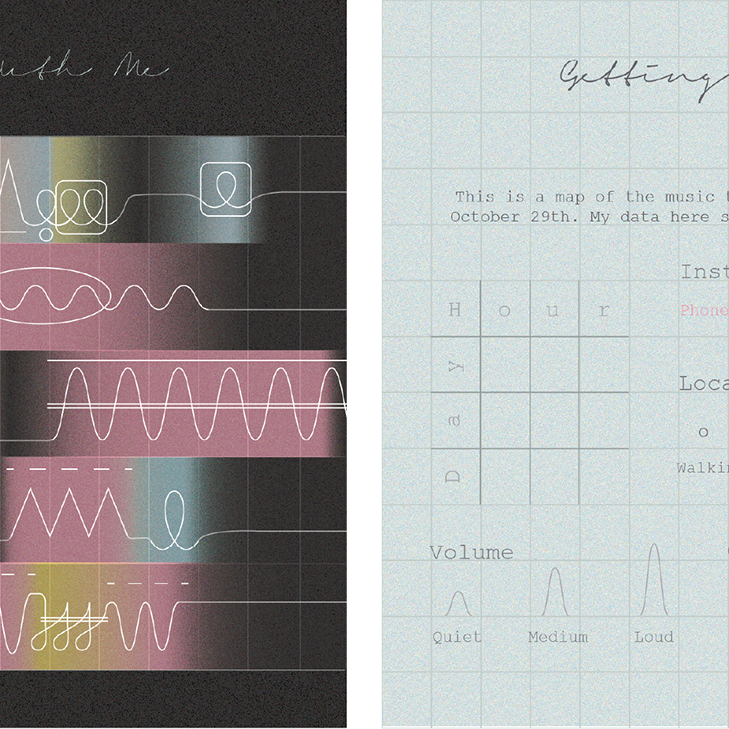 with Me
Getting
This is a map of the music
October 29th. My data here s
Inst
Hour
Phone
Day
Loca
Walkin
Volume
Quiet Medium Loud